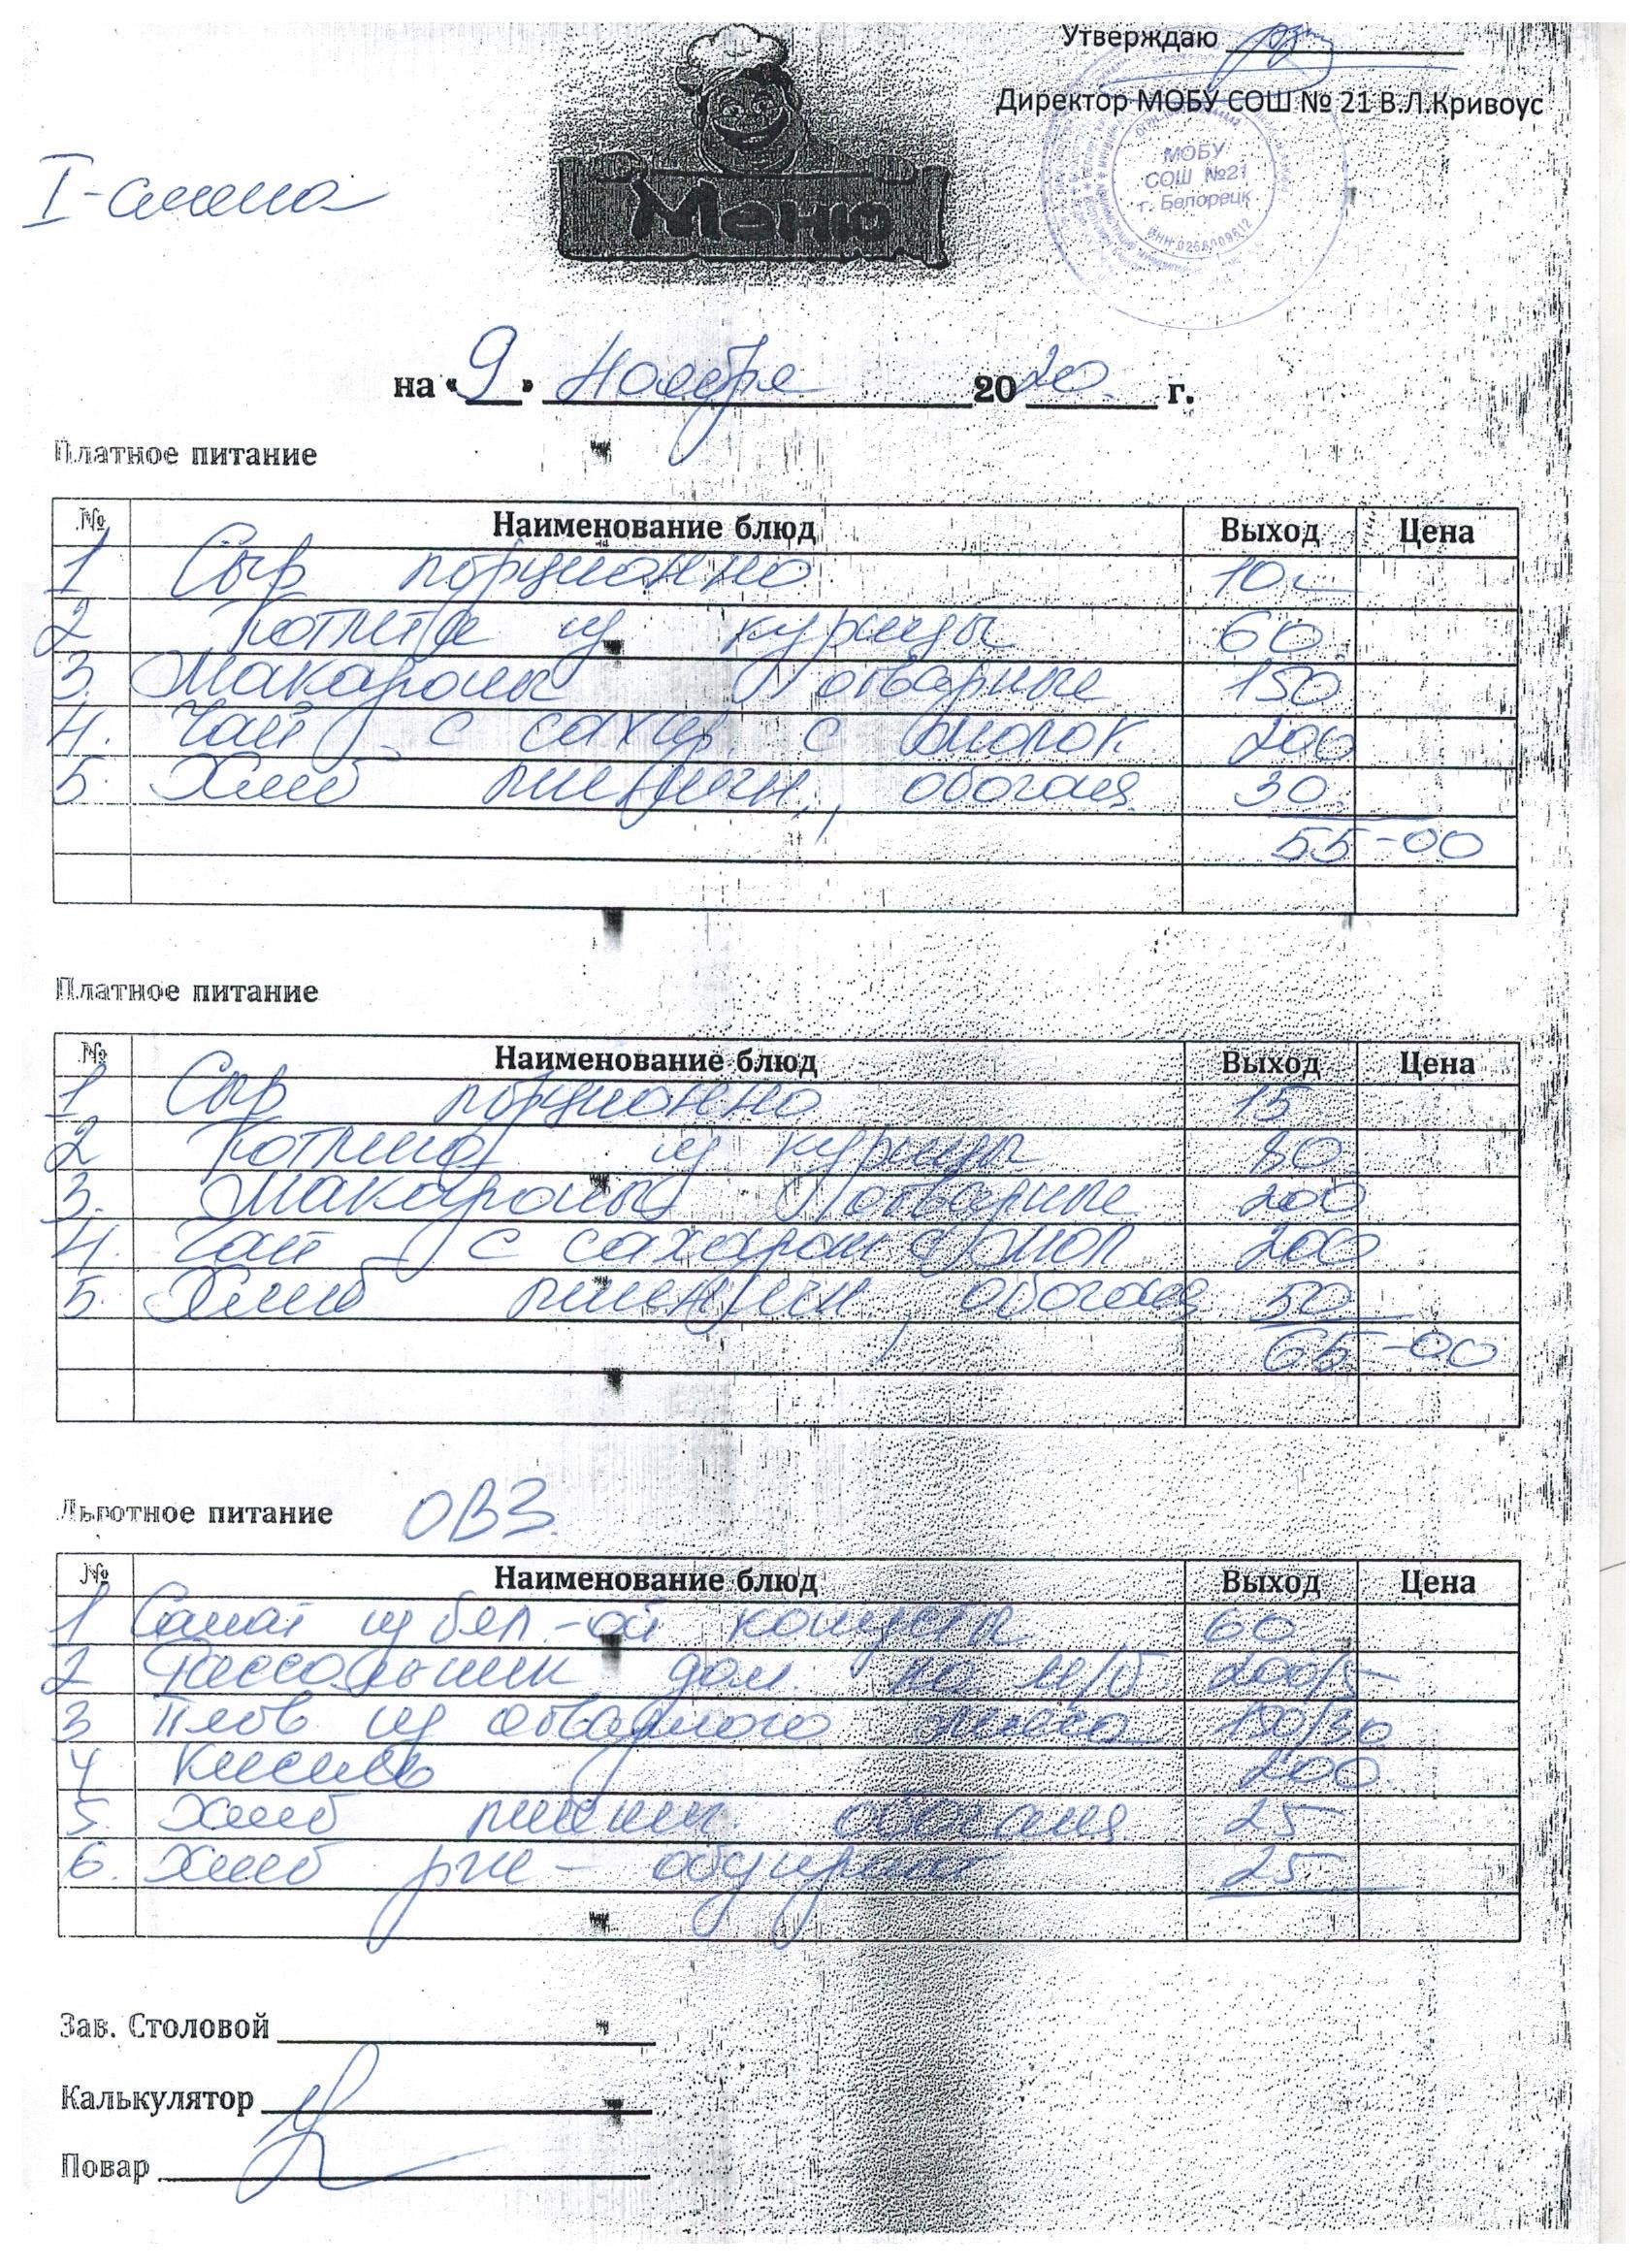 Утверждаю
Директор МОБУ СОШ № 21 В.Л.Кривоус
МОБУ
СОШ №21
г. Белорецк
I-смена
Меню
на «9» Ноября 2020 г.
Платное питание
№ Наименование блюд Выход Цена
1 Сыр порционно 10
2 Котлета из курицы 60
3. Макароны отварные 150
4. Чай с сахар. с молок 200
5. Хлеб пшеничн., обогащ. 30
55-00
Платное питание
№ Наименование блюд Выход Цена
1 Сыр порционно 15
2 Котлета из курицы 80
3. Макароны отварные 200
4. Чай с сахаром с мол 200
5. Хлеб обогащ 50
65-00
Льготное питание ОВЗ.
№ Наименование блюд Выход Цена
1 Салат из бел.-ой капусты 60
2 Рассольник дом. на м/б 200/5
3 Плов из отварного мяса
4 Кисель 200
5. Хлеб обогащ. 25
6. Хлеб рж- 25
Зав. Столовой
Калькулятор
Повар